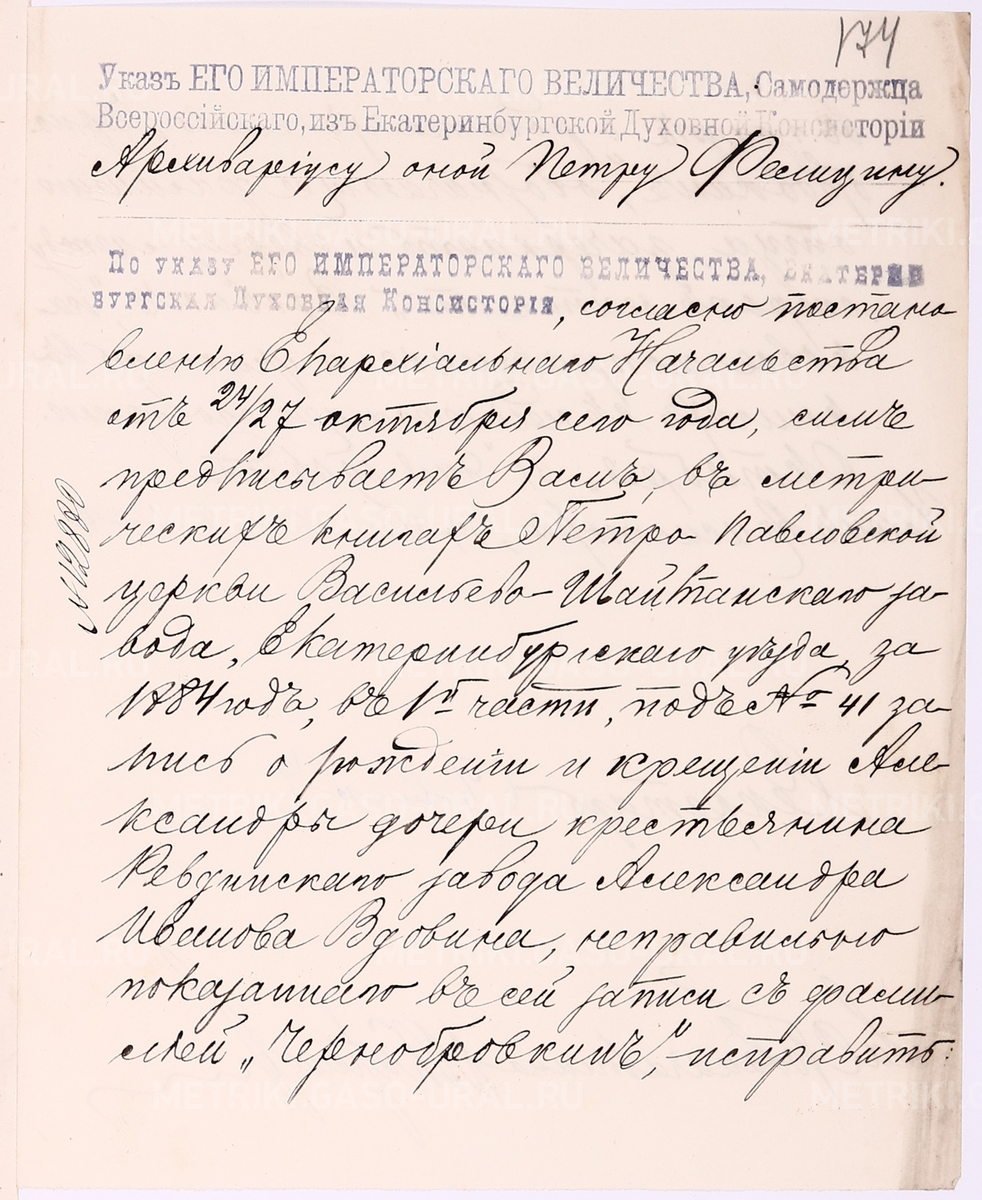 174
Указъ ЕГО ИМПЕРАТОРСКАГО ВЕЛИЧЕСТВА, Самодержца
Всероссійскаго, изъ Екатеринбургской Духовной Консисторіи
Архиваріусу оной Петру Фелицину.
По указу ЕГО ИМПЕРАТОРСКАГО ВЕЛИЧЕСТВА, Екатерин
бургская Духовная Консисторія, согласно постано-
вленію Епархіальнаго Начальства
отъ 24/27 октября сего года, симъ
предписываетъ Вамъ, въ метри-
ческихъ книгахъ Петро-Павловской
церкви Васильево-Шайтанскаго за-
вода, Екатеринбургскаго уѣзда, за
1884 годъ, въ 1й части, подъ № 41 за-
пись о рожденіи и крещеніи Але-
ксандры дочери крестьянина
Ревдинскаго завода Александра
Иванова Вдовина, неправильно
показаннаго въ сей записи съ фами-
ліей „Чернобровкинъ", исправить:
№12880
METRIKI.GASO-URAL.RU